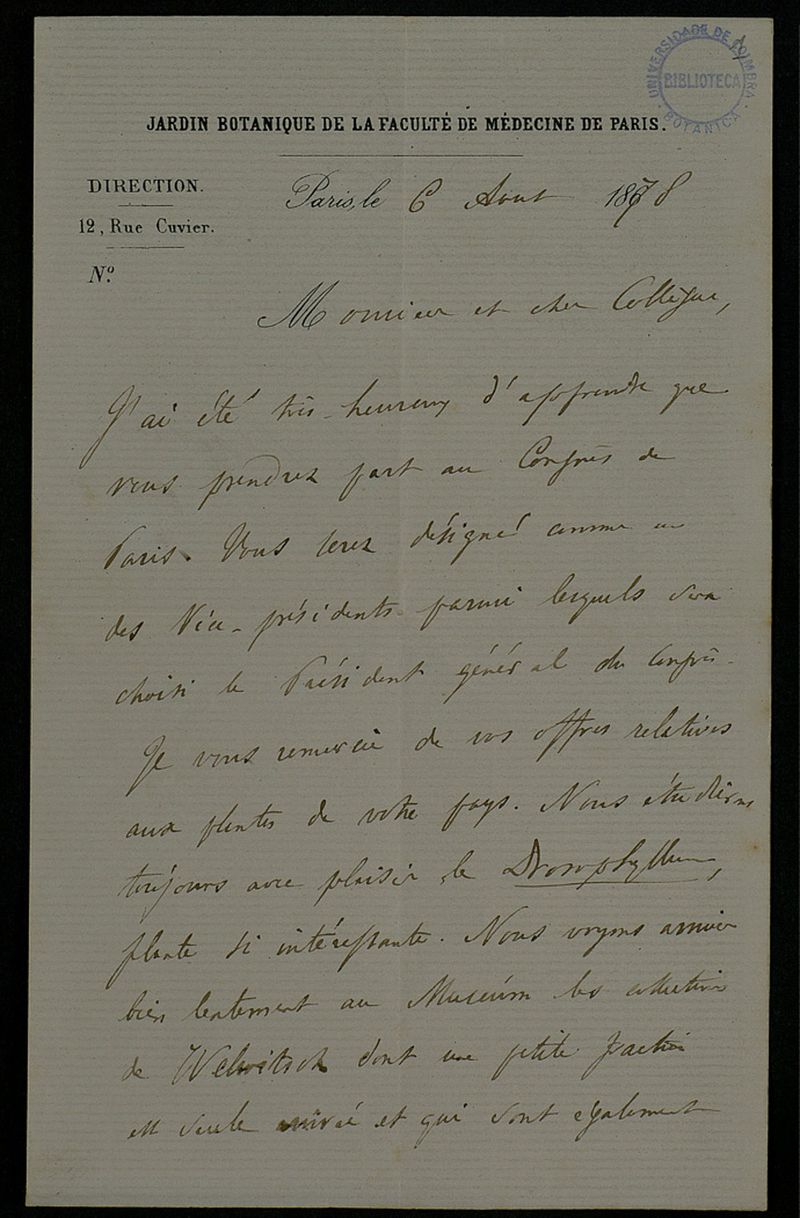 UNIVERSIDADE DE COIMBRA
BIBLIOTECA
BOTANICA
JARDIN BOTANIQUE DE LA FACULTÉ DE MÉDECINE DE PARIS.
DIRECTION.
12, Rue Cuvier.
Nº
Paris, le 6 Aout 1878
Monsieur et cher Collègue,
J'ai été très-heureux d'apprendre que
vous prendrez part au Congrès de
Paris. Vous serez désigné comme un
des Vice-présidents parmi lesquels sera
choisi le Président général du congrès.
Je vous remercie de vos offres relatives
aux plantes de votre pays. Nous étudierons
toujours avec plaisir le Drosophyllum,
plante si intéressante. Nous voyons arriver
bien lentement au Muséum les collections
de Welwitsch dont une petite partie
est seule arrivée et qui sont également